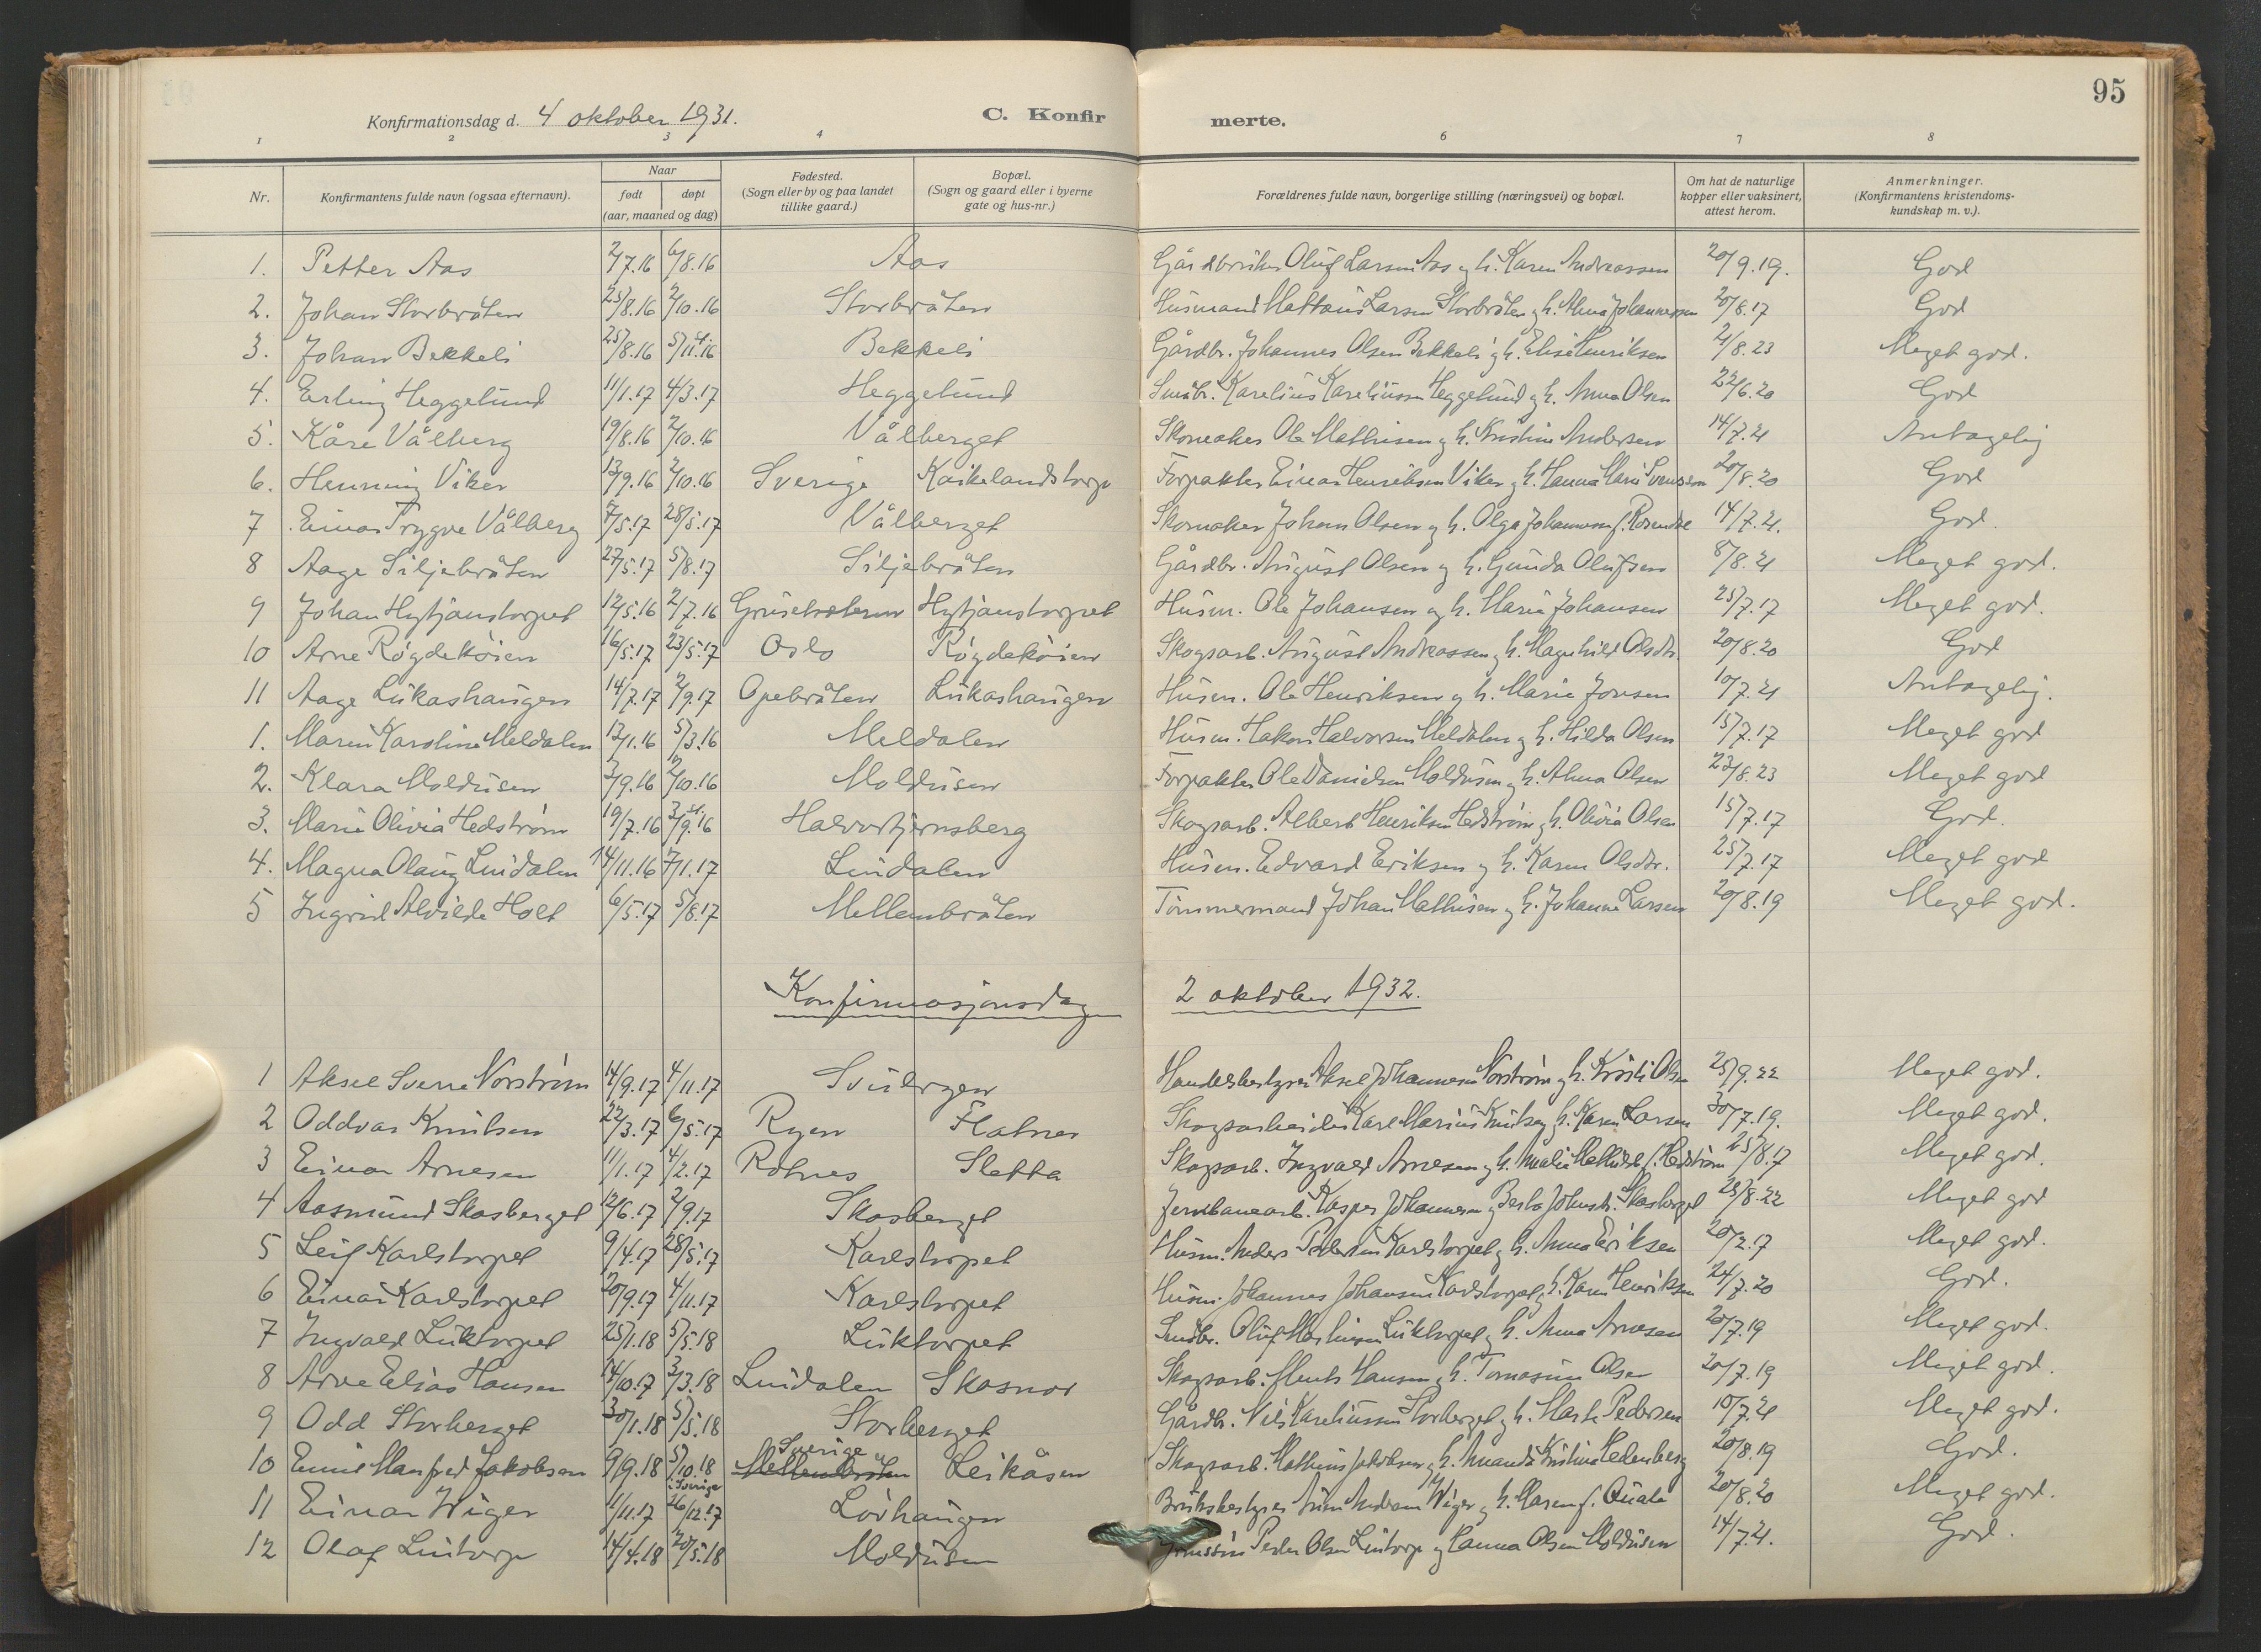 95
Konfirmationsdag d. 4 oktober 1931.
C. Konfirmerte.
1 2 3 4 6 7 8
Nr. Konfirmantens fulde navn (ogsaa efternavn). Naar født døpt (aar, maaned og dag) Fødested. (Sogn eller by og paa landet tillike gaard.) Bopæl. (Sogn og gaard eller i byerne gate og hus-nr.) Forældrenes fulde navn, borgerlige stilling (næringsvei) og bopæl. Om hat de naturlige kopper eller vaksinert, attest herom. Anmerkninger. (Konfirmantens kristendoms-kundskap m. v.).
1. Petter Aas 2/7.16 6/8.16 Aas Gårdbruker Oluf Larsen Aas og h. Karen Andreassen 20/9.19. God
2. Johan Storbråten 25/8.16 2/10.16 Storbråten Husmand Mattæus Larsen Storbråten og h. Alma Johannessen 20/8.17 God
3. Johan Bekkeli 25/8.16 5/11.16 Bekkeli Gårdbr. Johannes Olsen Bekkeli og h. Elise Henriksen 21/8.23 Meget god.
4. Erling Heggelund 11/1.17 4/3.17 Heggelund Småbr. Karelius Kareliussen Heggelund og h. Anna Olsen 22/6.20 God
5. Kåre Vålberg 19/8.16 2/10.16 Vålberget Skomaker Ole Mathisen og h. Kristine Andersen 14/7.21 Antagelig
6. Henning Viker 13/9.16 2/10.16 Sverige Kaikelandstorp Forpakter Einar Henriksen Viker og h. Hanna Marie Svensen 20/8.20 God
7. Einar Trygve Vålberg 7/5.17 28/5.17 Vålberget Skomaker Johan Olsen og h. Olga Johannesen f. Rosendal 14/7.21. God.
8 Aage Siljebråten 27/5.17 5/8.17 Siljebråten Gårdbr. August Olsen og h. Gunda Olufsen 8/8.21 Meget god.
9 Johan Hytjanstorpet 12/5.16 2/7.16 Grusetsæteren Hytjanstorpet Husm. Ole Johansen og h. Marie Johansen 25/7.17 Meget god.
10 Arne Røgdekøien 16/5.17 23/5.17 Oslo Røgdekøien Skogsarb. August Andreassen og h. Magnhild Olsdtr. 20/8.20 God
11 Aage Lukashaugen 14/7.17 2/9.17 Opebråten Lukashaugen Husm. Ole Henriksen og h. Marie Jonsen 10/7.21 Antagelig.
1. Maren Karoline Meldalen 12/1.16 5/3.16 Meldalen Husm. Hakon Halvorsen Meldalen og h. Hilda Olsen 15/7.17 Meget god
2. Klara Moldusen 3/9.16 2/10.16 Moldusen Forpakter Ole Danielsen Moldusen og h. Alma Olsen 23/8.23 Meget god
3. Marie Olivia Hedstrøm 19/7.16 3/9.16 Halvortjernsberg Skogsarb. Albert Henriksen Hedstrøm og h. Olivia Olsen 15/7.17 God.
4. Magna Olaug Lindalen 14/11.16 7/1.17 Lindalen Husm. Edvard Eriksen og h. Karen Olsdtr. 25/7.17 Meget god
5 Ingrid Alvilde Holt 6/5.17 5/8.17 Mellembråten Tømmermand Johan Mathisen og h. Johanne Larsen 20/8.19 Meget god.
Konfirmasjonsdag 2 oktober 1932.
1 Aksel Sverre Norstrøm 14/9.17 4/11.17 Svullrya Handelsbestyrer Aksel Johannesen Norstrøm og h. Kristi Olsen 25/9.22 Meget god.
2 Oddvar Knutsen 22/3.17 6/5.17 Ryen Flatner Skogsarbeider Karl Marius Knutsen og h. Karen Larsen 30/7.19. Meget god.
3 Einar Arnesen 11/1.17 4/2.17 Rotnes Sletta Skogsarb. Ingvald Arnesen og h. Amalie Mathilde f. Hedstrøm 25/8.17 Meget god.
4 Aasmund Skasberget 12/6.17 2/9.17 Skasberget Jernbanearb. Kasper Johannesen og Berta Johansdtr. Skasberget 23/8.22 Meget god
5 Leif Karlstorpet 9/4.17 28/5.17 Karlstorpet Husm. Anders Pedersen Karlstorpet og h. Anna Eriksen 20/7.17 Meget god.
6 Einar Karlstorpet 20/9.17 4/11.17 Karlstorpet Husm. Johannes Johansen Karlstorpet og h. Karen Henriksen 24/7.20 God.
7 Ingvald Luktorpet 25/1.18 5/5.18 Luktorpet Småbr. Oluf Martinsen Luktorpet og h. Anna Arnesen 20/7.19 Meget god.
8 Arve Elias Hansen 14/10.17 3/3.18 Lindalen Skasnor Skogsarb. Ments Hansen og h. Tomasine Olsen 20/7.19 Meget god.
9 Odd Storberget 30/1.18 5/5.18 Storberget Gårdb. Nils Kareliussen Storberget og h. Marte Pedersen 10/7.21 Meget god.
10 Emil Manfred Jakobsen 9/9.18 5/10.18 i Sverige Sverige Mellembråten Leikåsen Skogsarb. Matheus Jakobsen og h. Amanda Kristina Hedenberg 20/8.19 God.
11 Einar Wiger 1/11.17 26/12.17 Løvhaugen Bruksbestyrer Andersen Wiger og h. Maren f. Quale 20/8.20 Meget god.
12 Olaf Lintorp 14/4.18 20/5.18 Moldusen Peder Olsen Lintorp og Hanna Olsen Moldusen 14/7.21. God.